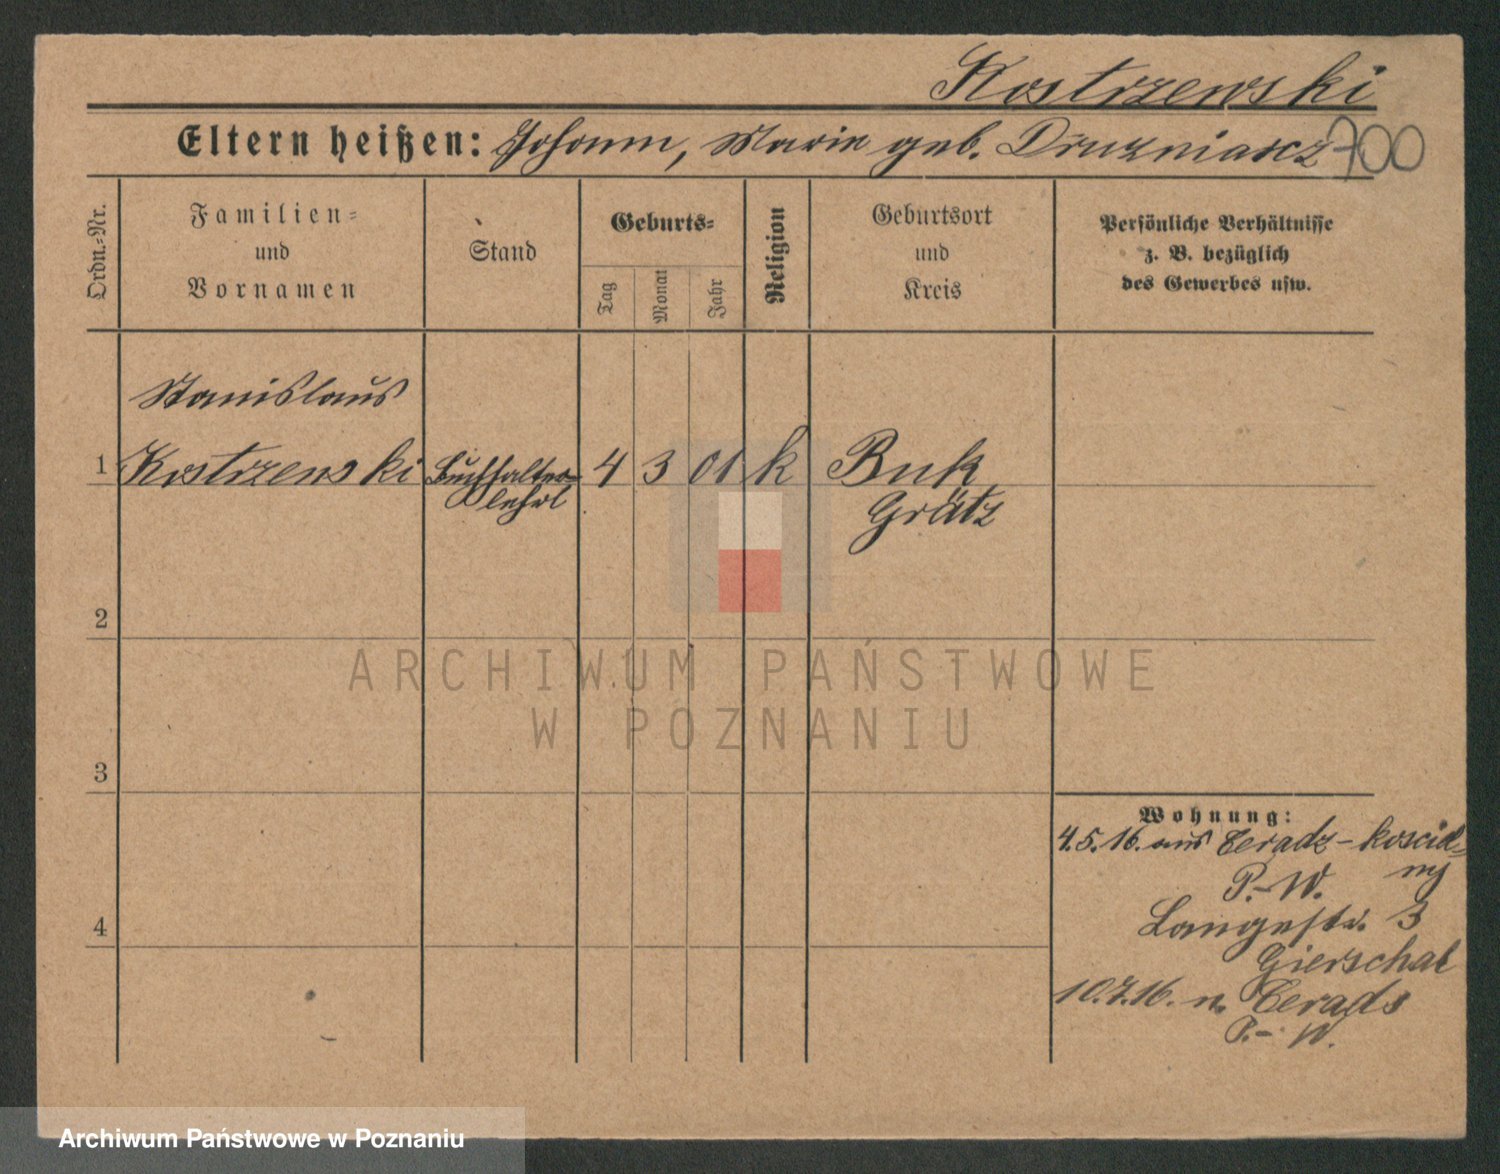 Kostrzewski
Eltern heißen: Johann, Marie geb. Druzniarz
700
Ordn.-Nr.
Familien-
und
Vornamen
Stand
Geburts-
Tag
Monat
Jahr
Religion
Geburtsort
und
Kreis
Persönliche Verhältnisse
z. B. bezüglich
des Gewerbes usw.
Stanislaus
1 Kostrzewski Buchhalter- 4 3 01 k Buk
lehrl Grätz
2
3
4
Wohnung:
4.5.16. aus
P.-W.
Langestr. 3
Gierschal
10.7.16. n.
P.-W.
ARCHIWUM PAŃSTWOWE
W POZNANIU
Archiwum Państwowe w Poznaniu